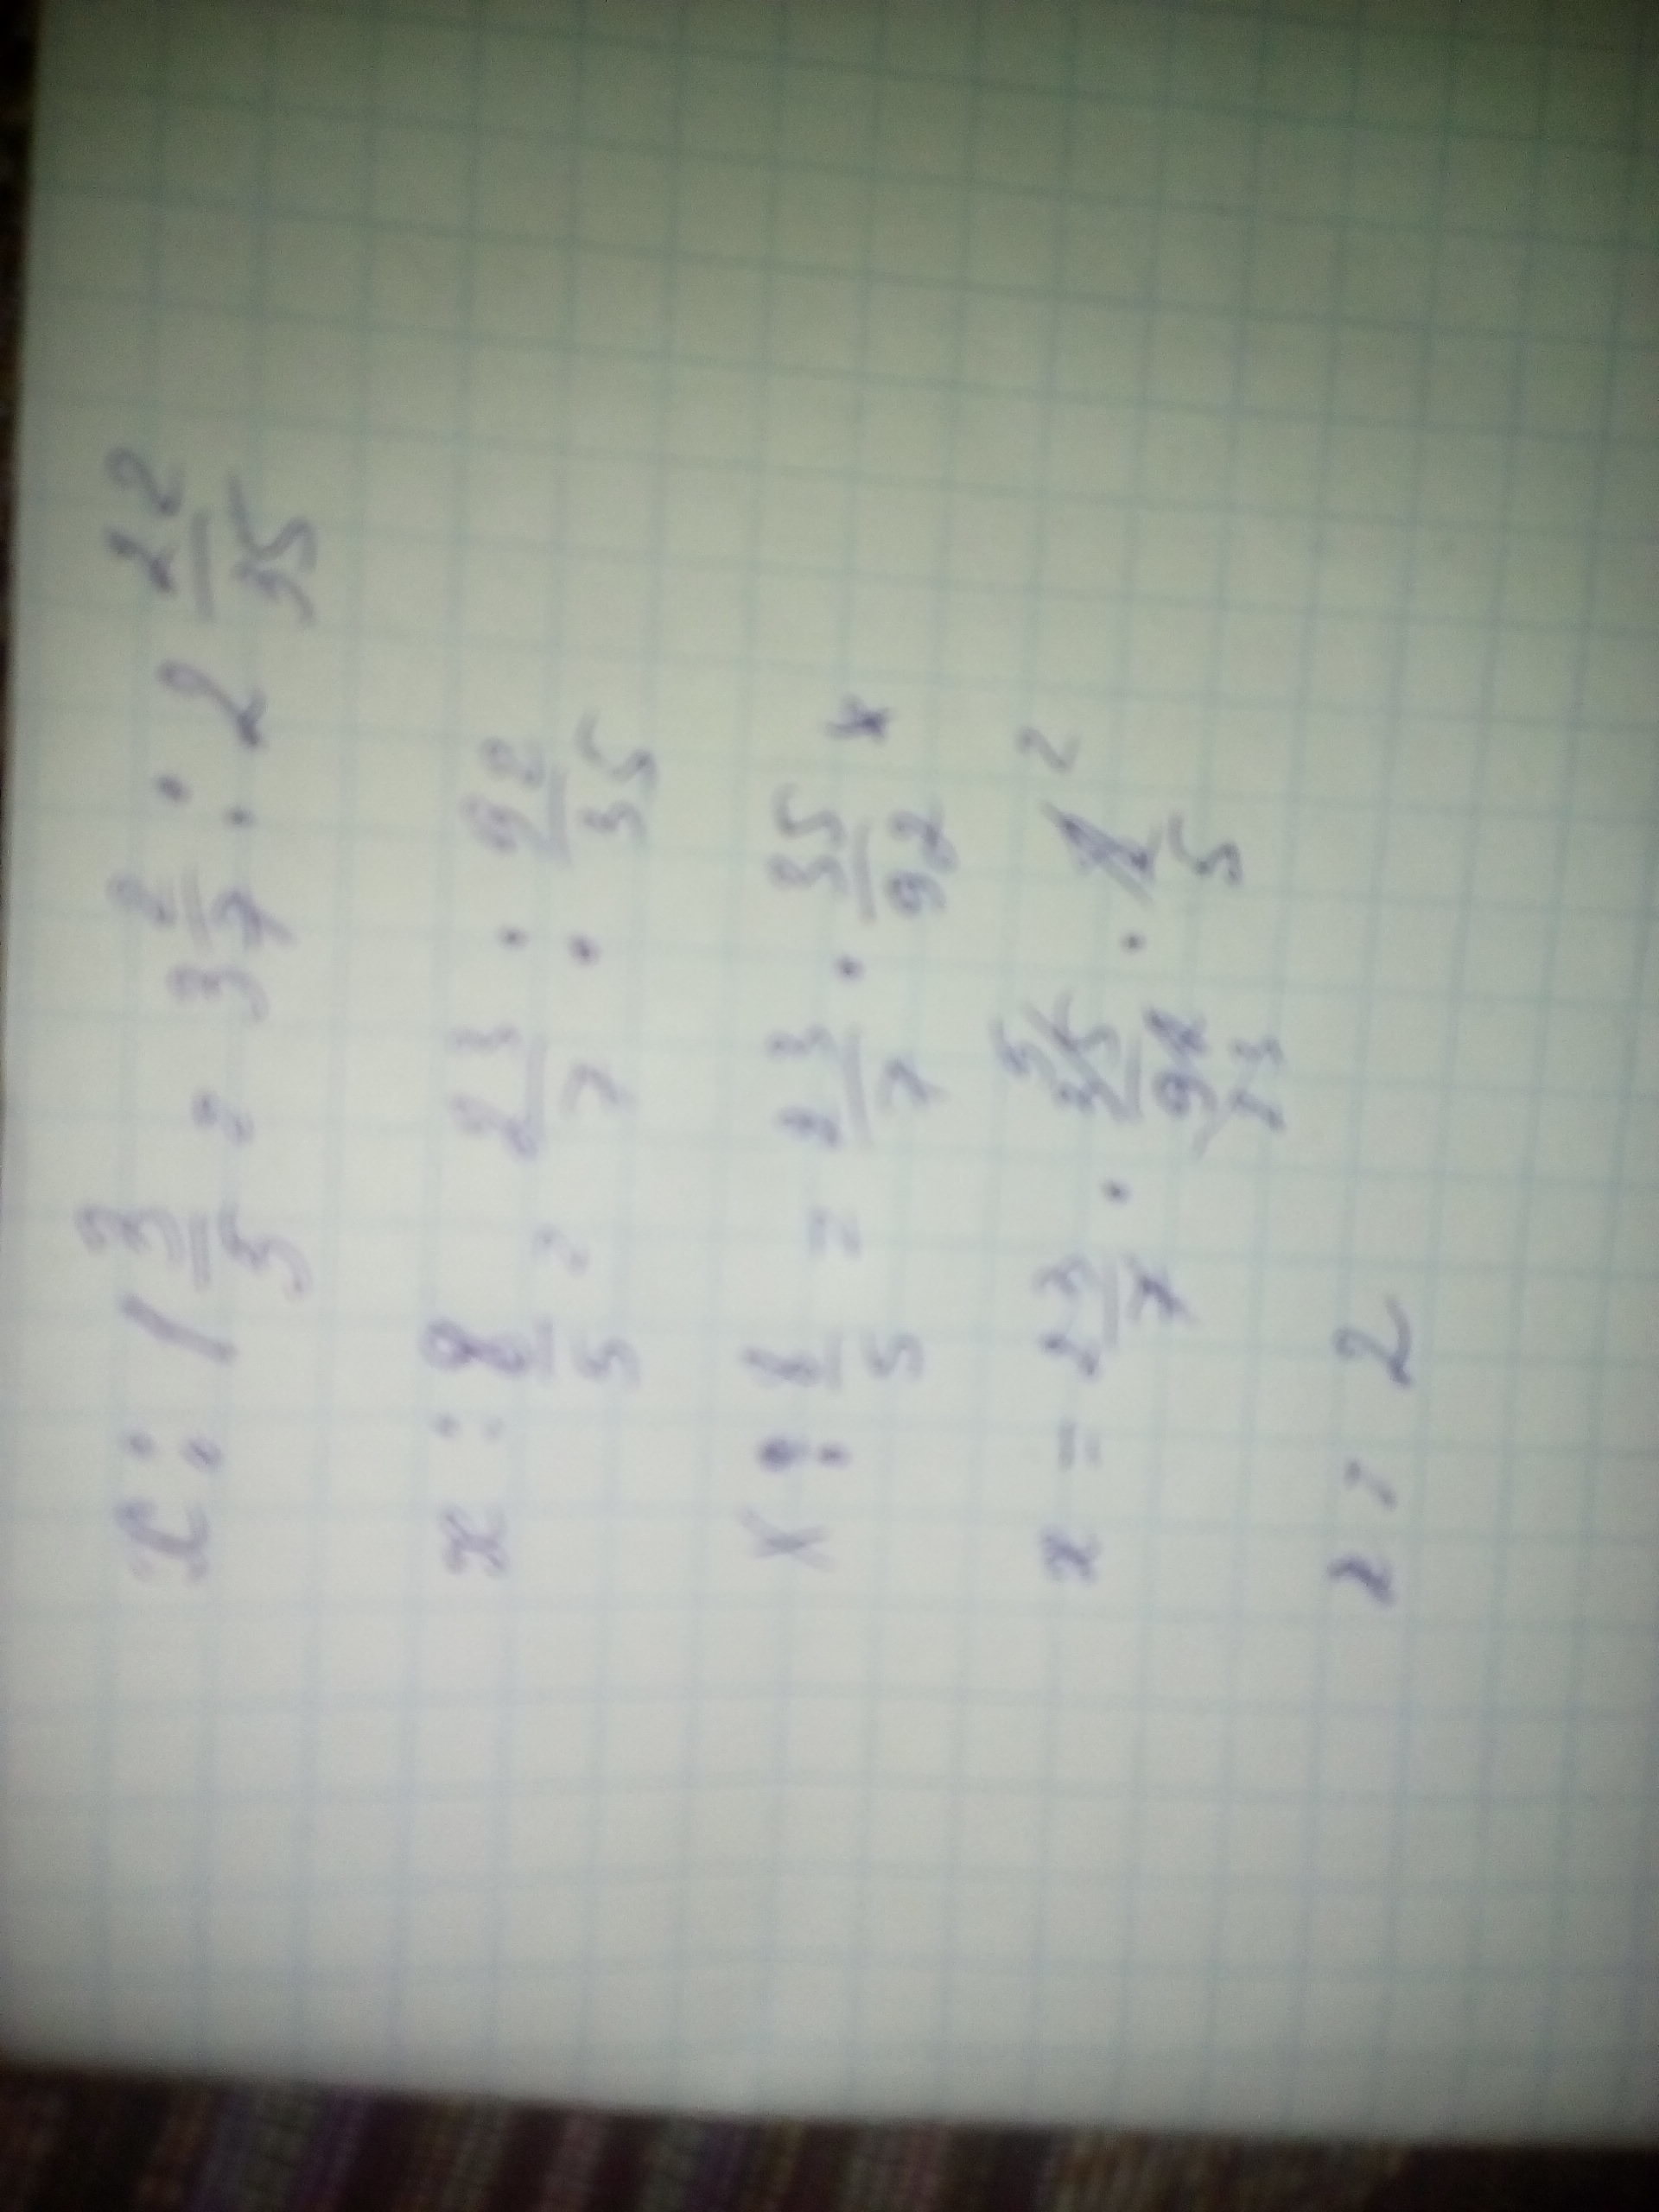 x : 1 3/5 = 3 2/7 : 2 22/35
x : 8/5 = 23/7 : 92/35
x : 8/5 = 23/7 · 35/92
x = 23/7 · 35/92 · 8/5
x = 2